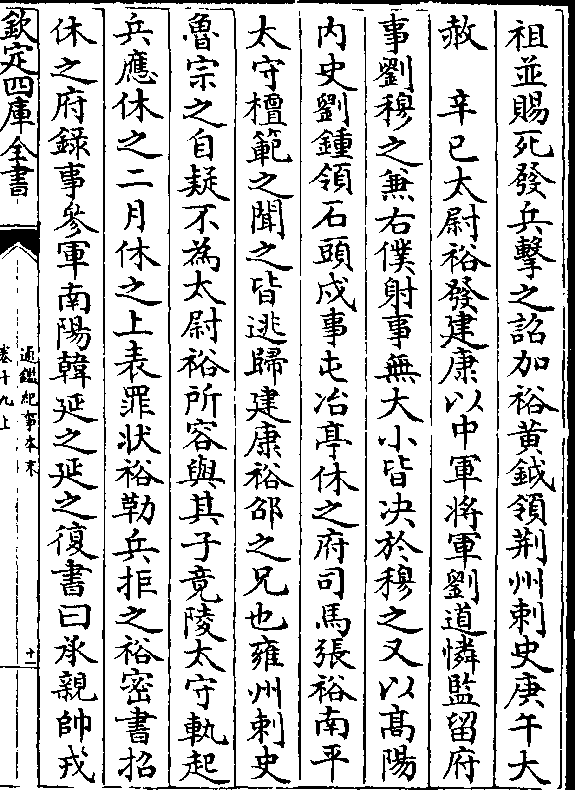 祖並賜死發兵擊之詔加裕黃鉞領荆州刺史庚午大
赦　辛巳太尉裕發建康以中軍將軍劉道憐監留府
事劉穆之兼右僕射事無大小皆決於穆之又以高陽
内史劉鍾領石頭戍事屯冶亭休之府司馬張裕南平
太守檀範之聞之皆逃歸建康裕邵之兄也雍州刺史
魯宗之自疑不為太尉裕所容與其子竟陵太守軌起
兵應休之二月休之上表罪狀裕勒兵拒之裕密書招
休之府録事參軍南陽韓延之延之復書曰承親帥戎
欽定四庫全書
通鑑紀事本末
卷十九上
十一